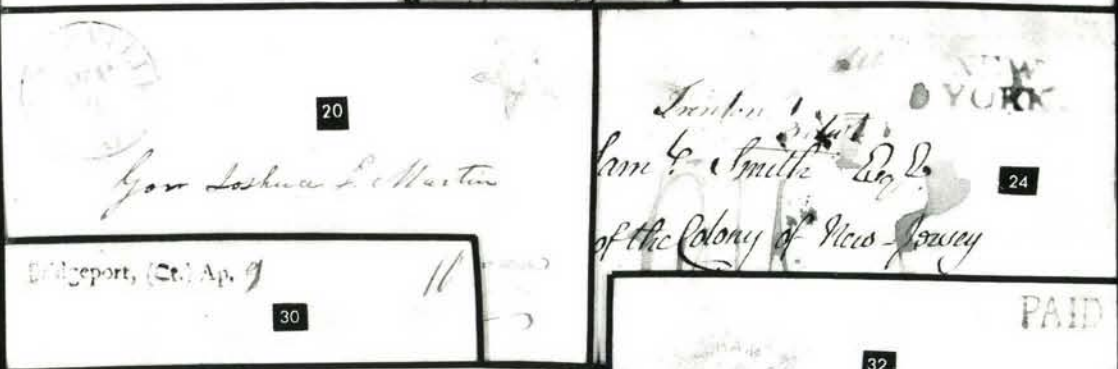 20
Gov Joshua L. Martin
Bridgeport, (Ct.) Ap. 9
11
30
NEW
YORK
Trenton
Smith Esqr.
of the Colony of New-Jersey
24
PAID
32